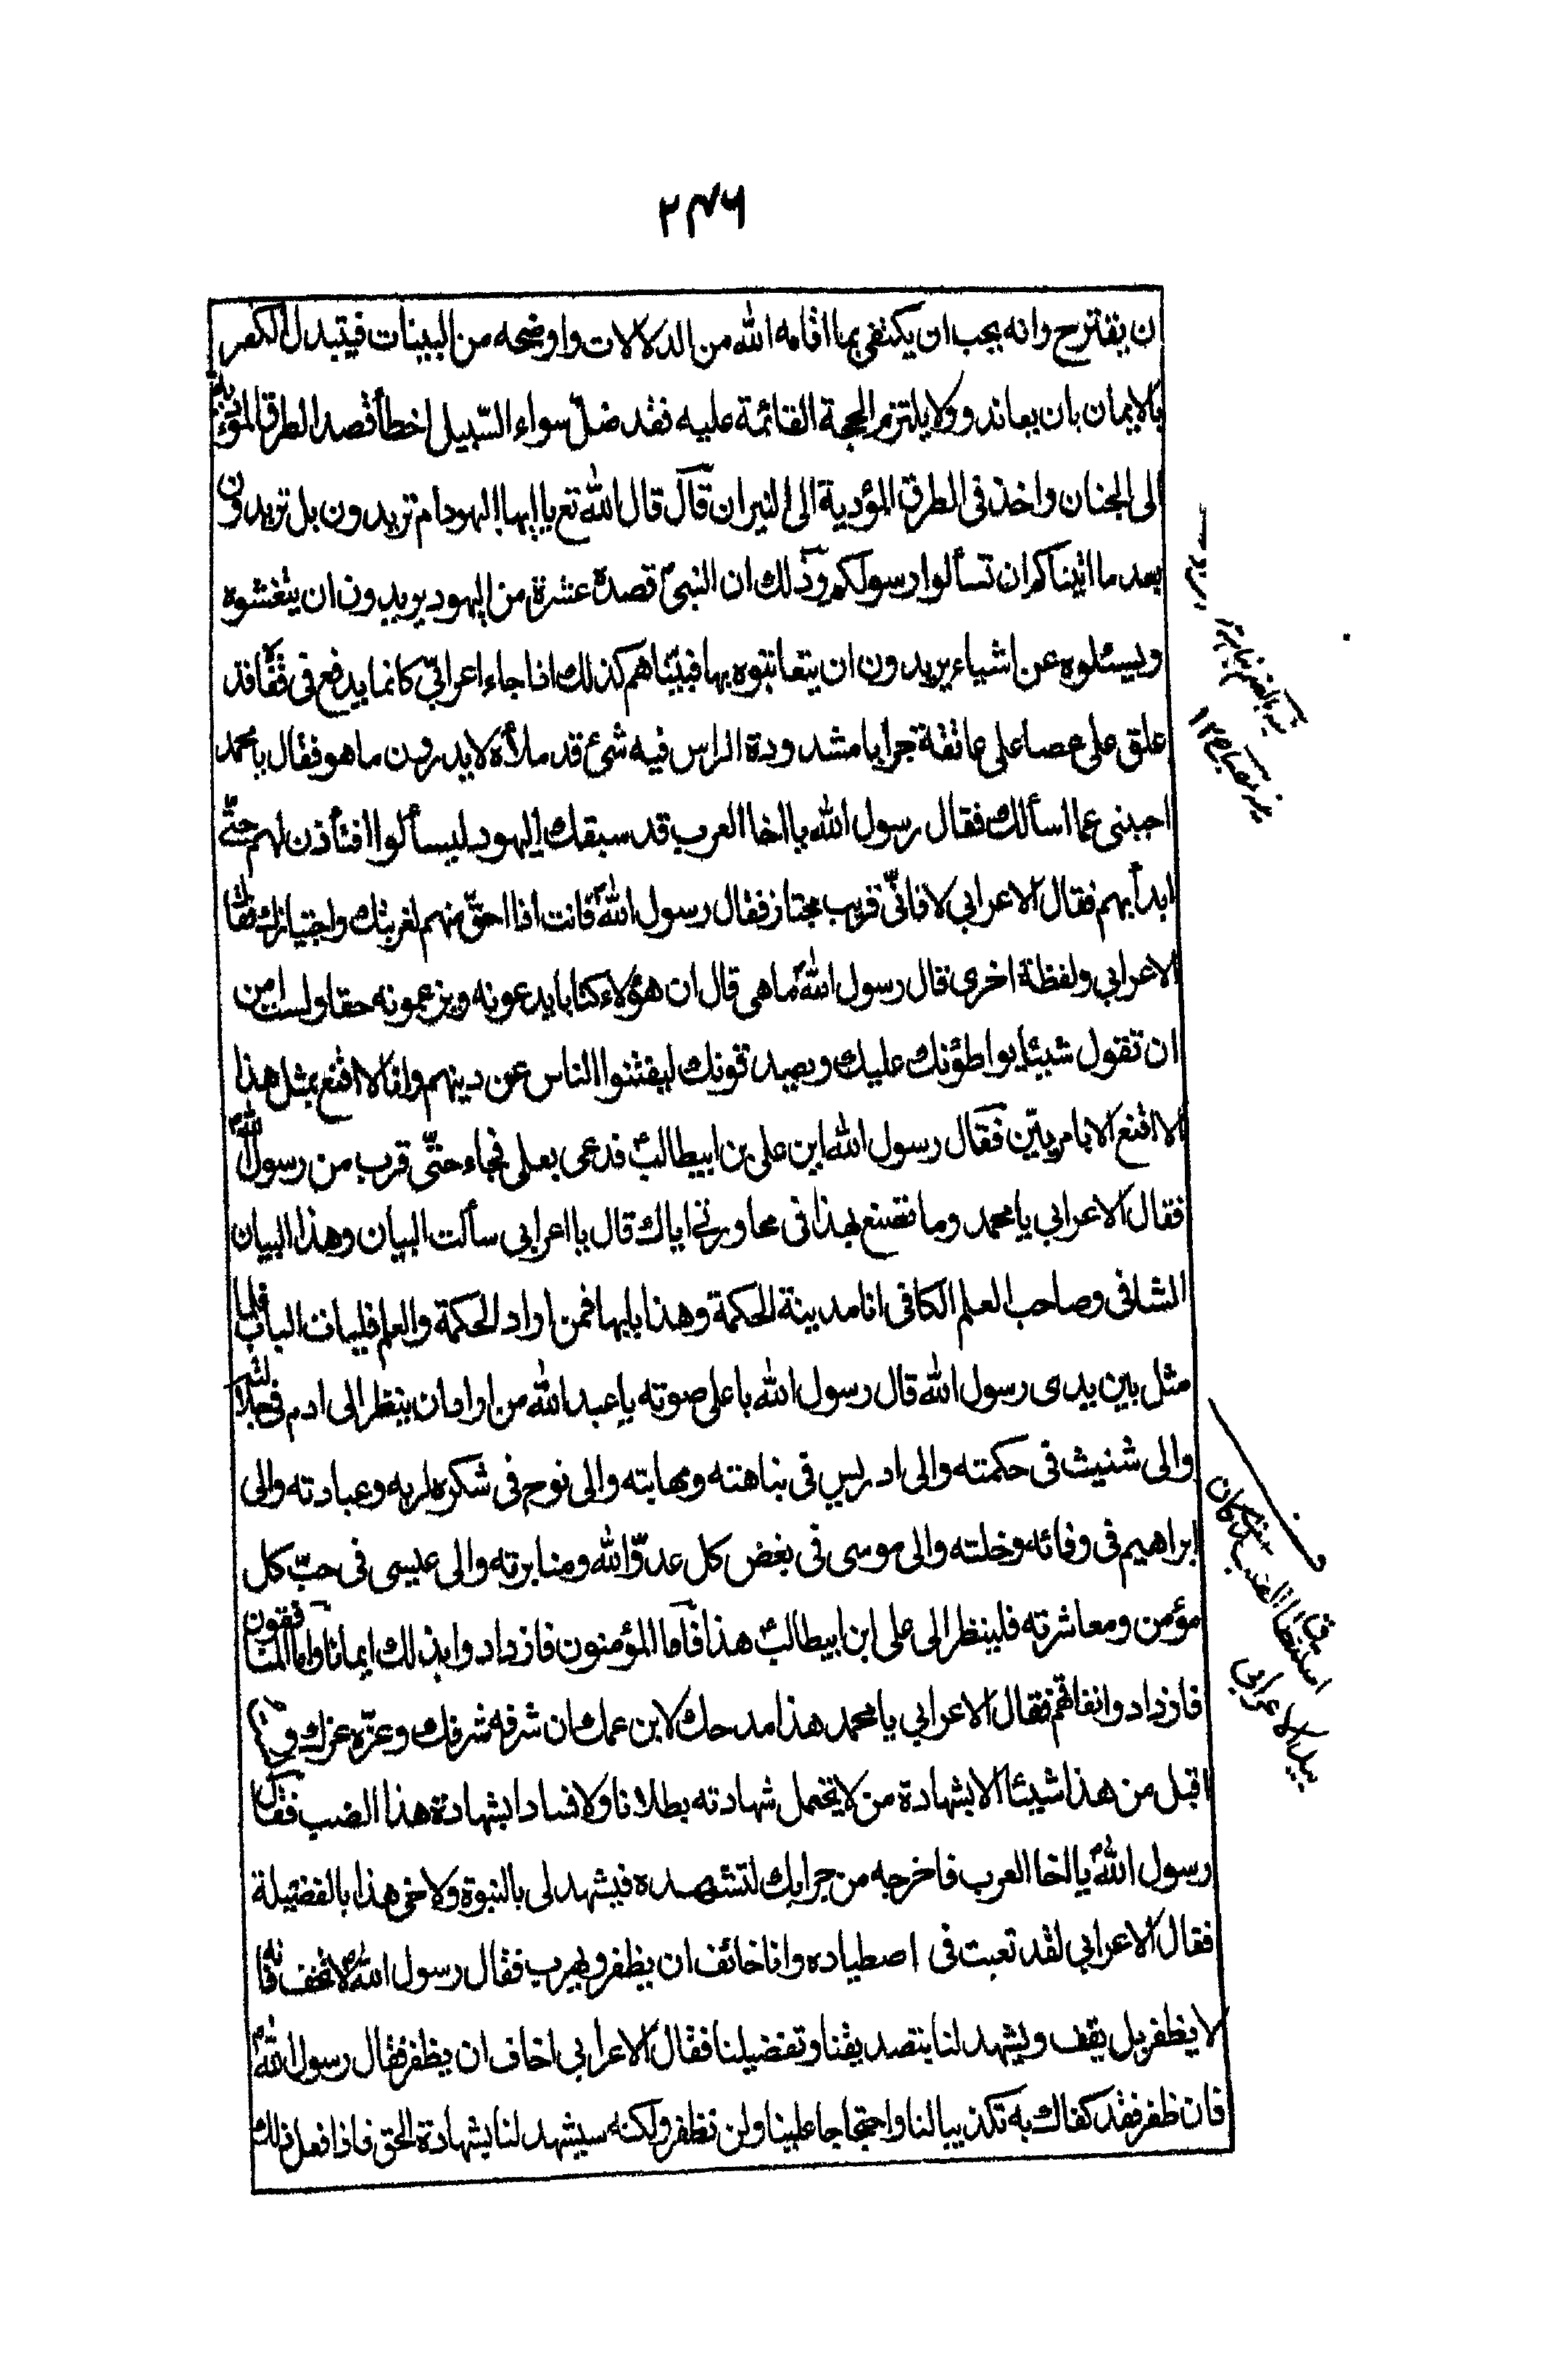 ۲۴۶
ن يقترح وانه يجب ان يكتفى بما اقامه الله من الدلالات واوضحه من البينات فيتبدل الكفر
بالايمان بان يعاند وولا يلتزم الحجة القائمة عليه فقد ضلّ سواء السّبيل اخطأ قصد الطرق المؤدية
الى الجنان واخذ فى الطرق المؤدية الى النيران قال قال الله تع يا ايها اليهود ام تريدون بل تريدون
بعد ما اتيناكم ان تسألوا رسولكم وذلك ان النبىّ قصده عشرة من اليهود يريدون ان يتغشوه
ويسئلوه عن اشياء يريدون ان يتعانتوه بها فبيّناهم كذلك اذا جاء اعرابىّ كانما يدفع فى قفا قد
علق على عصا على عاتقة جرابا مشدودة الراس فيه شئ قد ملأه لا يدرون ما هو فقال يا محمد
اجبنى عما اسألك فقال رسول الله يا اخا العرب قد سبقك اليهود ليسألوا افتأذن لهم حتّى
ابدأ بهم فقال الاعرابي لا فانّى قريب مجتاز فقال رسول الله فانت اذا احقّ منهم لغربتك واجتيازك فقال
الاعرابي ولفظة اخرى فقال رسول الله ما هى قال ان هؤلاء كتابا يدعونه ويزعمونه حقا ولست امن
ان تقول شيئا يواطؤنك عليك ويصدقونك ليفتنوا الناس عن دينهم وانا لا اقنع بمثل هذا
لا اقنع الا بامر بيّن فقال رسول الله اين على بن ابيطالب فدعى بعلى فجاء حتّى قرب من رسول الله
فقال الاعرابي يا محمد وما تصنع بهذا فى محاورتى اياك قال يا اعرابى سألت البيان وهذا البيان
الشافى وصاحب العلم الكافى انا مدينة الحكمة وهذا بابها فمن اراد الحكمة والعلم فليات الباب فلما
مثل بين يدى رسول الله قال رسول الله باعلى صوته يا عبد الله من اراد ان ينظر الى ادم فى جلالته
والى شنيث فى حكمته والى ادريس فى نباهته ومهابته والى نوح فى شكره لربه وعبادته والى
ابراهيم فى وفائه وخلته والى موسى فى بغض كل عدوّ الله ومنابرته والى عيسى فى حبّ كل
مؤمن ومعاشرته فلينظر الى على ابن ابيطالب هذا فاما المؤمنون فازدادوا بذلك ايمانا واما المنافقون
فازداد وانفاقهم فقال الاعرابي يا محمد هذا مدحك لابن عمك ان شرفه شرفك وعزّه عزك و
اقبل من هذا شيئا الا بشهادة من لا تحتمل شهادته بطلانا ولا فسادا بشهادة هذا الضب فقال
رسول الله يا اخا العرب فاخرجه من جرابك لتشهده فيشهد لى بالنبوة ولاخى هذا بالفضيلة
فقال الاعرابي لقد تعبت فى اصطياده وانا خائف ان يظفر ويهرب فقال رسول الله لا تخف فانه
لا يظفر بل يقف ويشهد لنا بتصديقنا وتفضيلنا فقال الاعرابي اخاف ان يظفر فقال رسول الله
فان ظفر فقد كفاك به تكذيبا لنا واحتجاجا علينا ولن تظفر ولكنه سيشهد لنا بشهادة الحق فاذا فعل ذلك